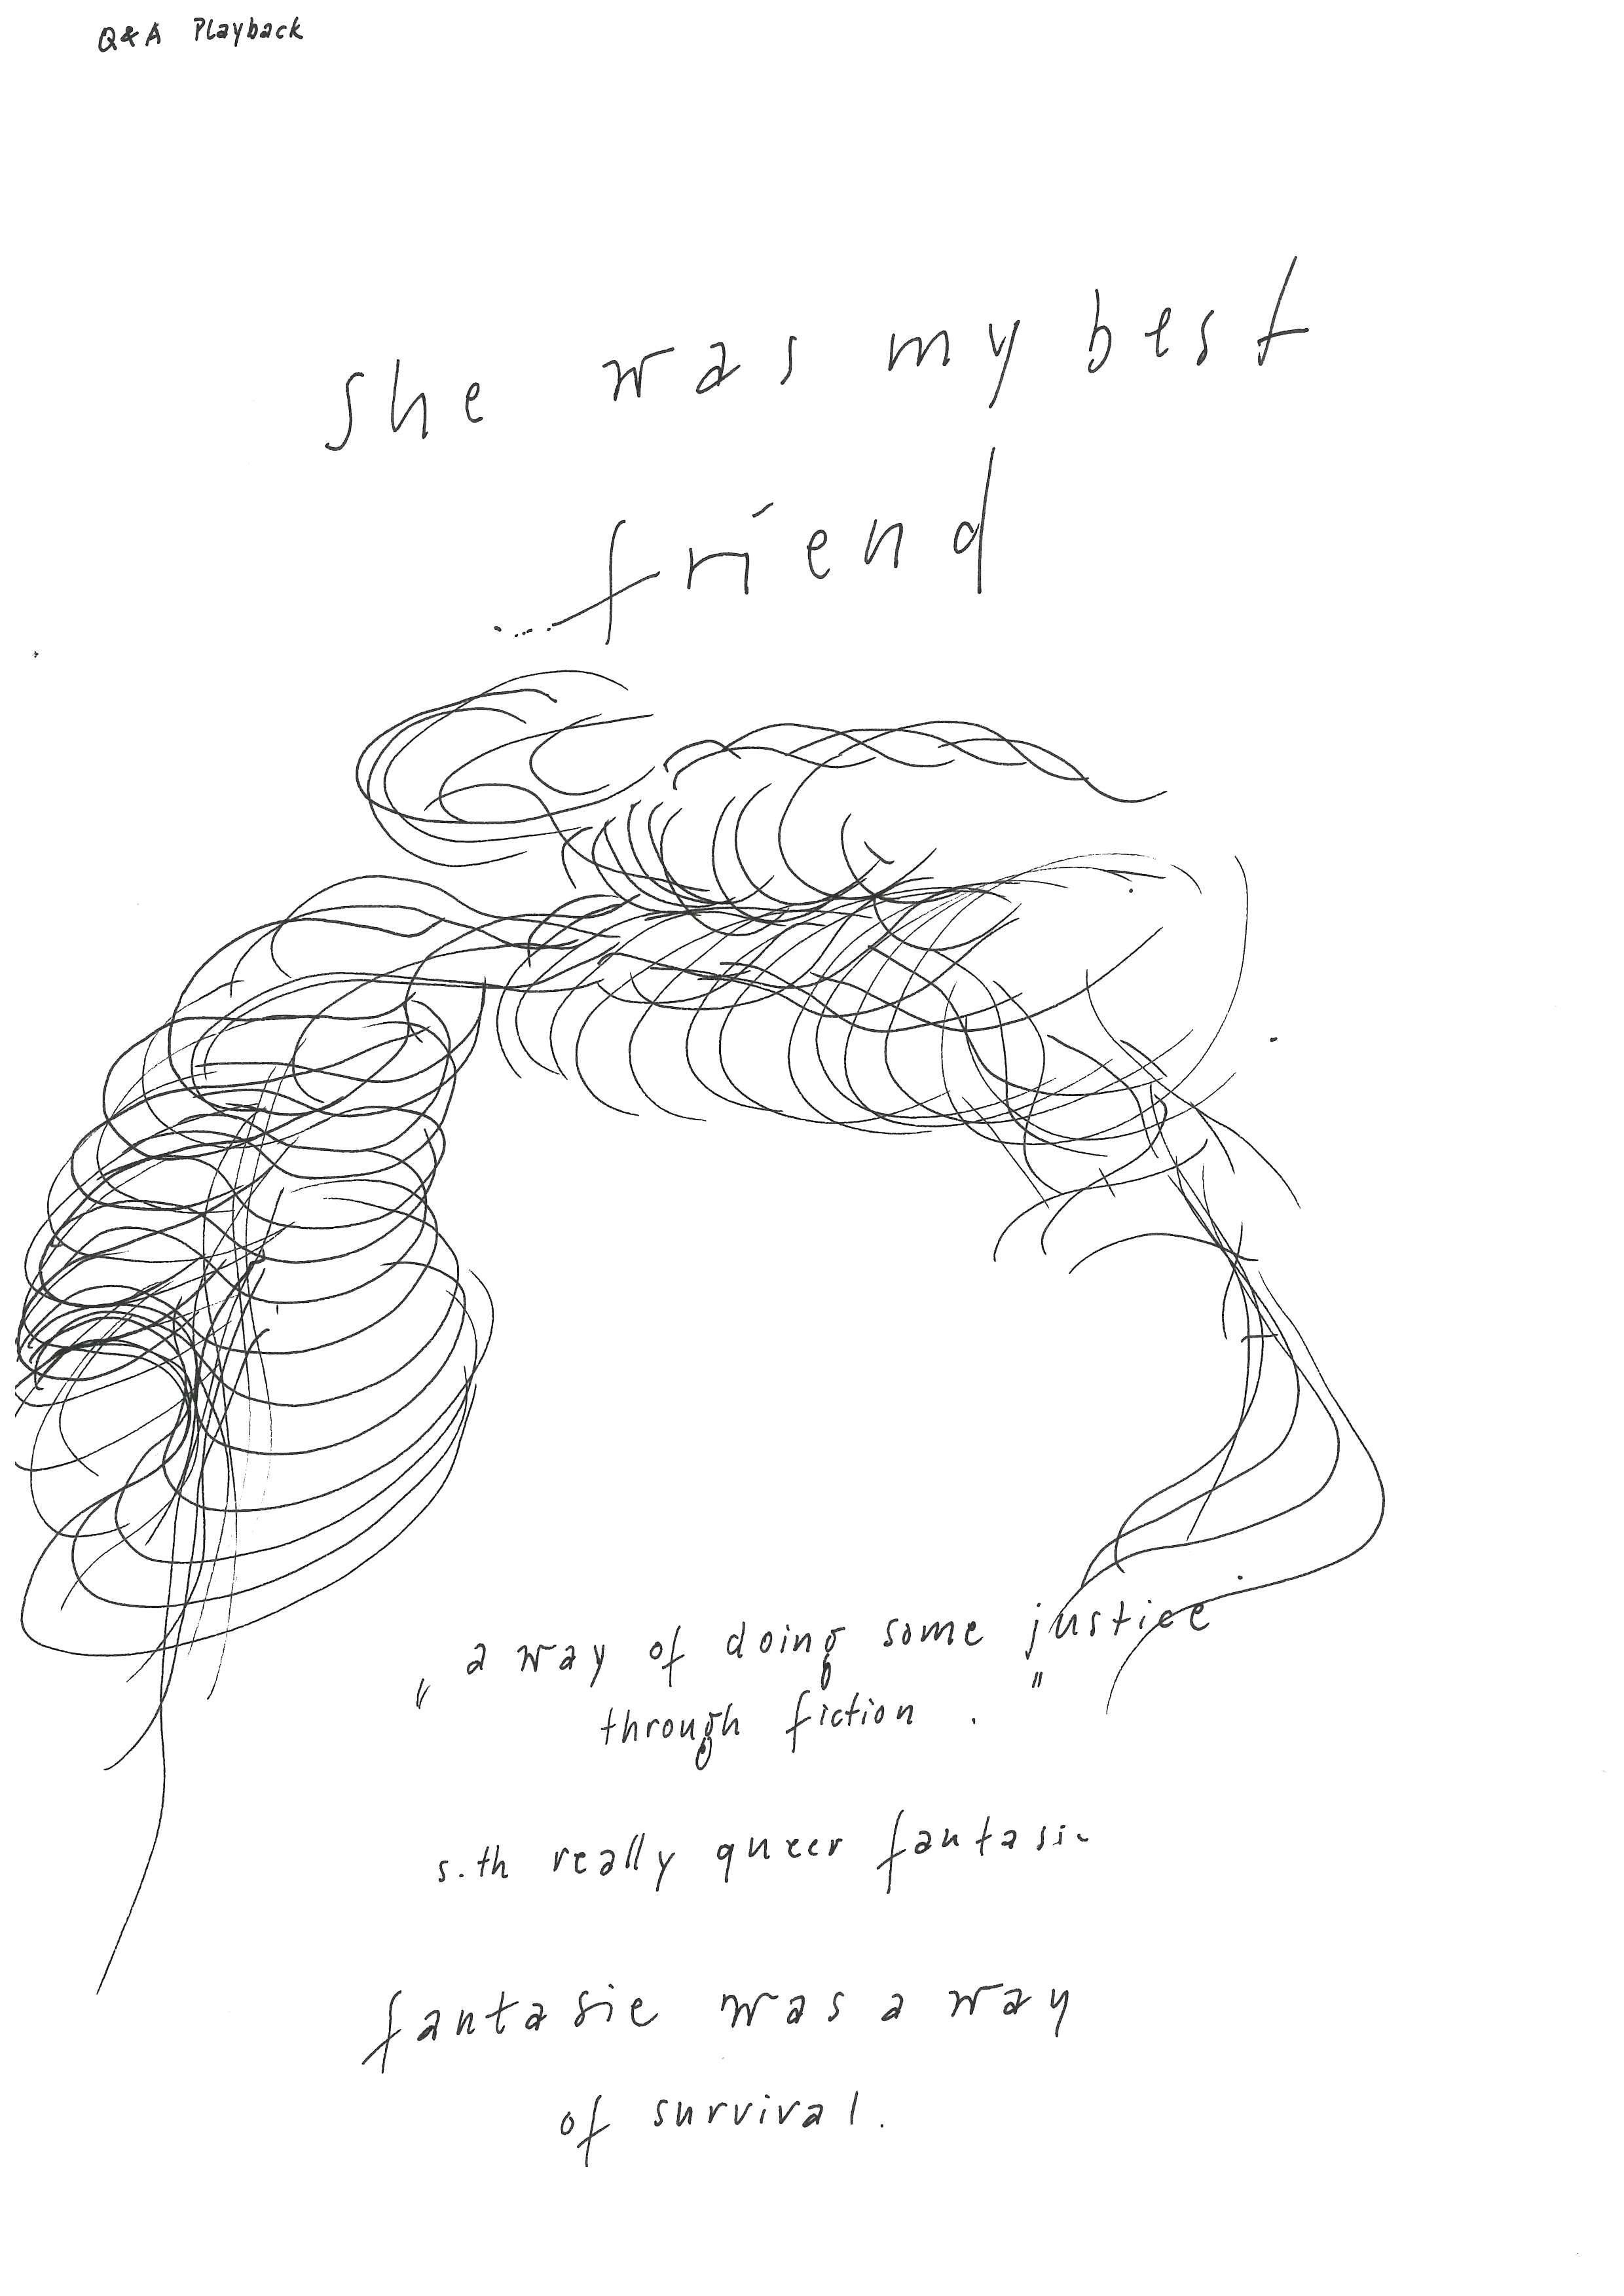 Q&A Playback
She was my best
...friend
„a way of doing some justice
through fiction."
s.th really queer fantasi~
fantasie was a way
of survival.